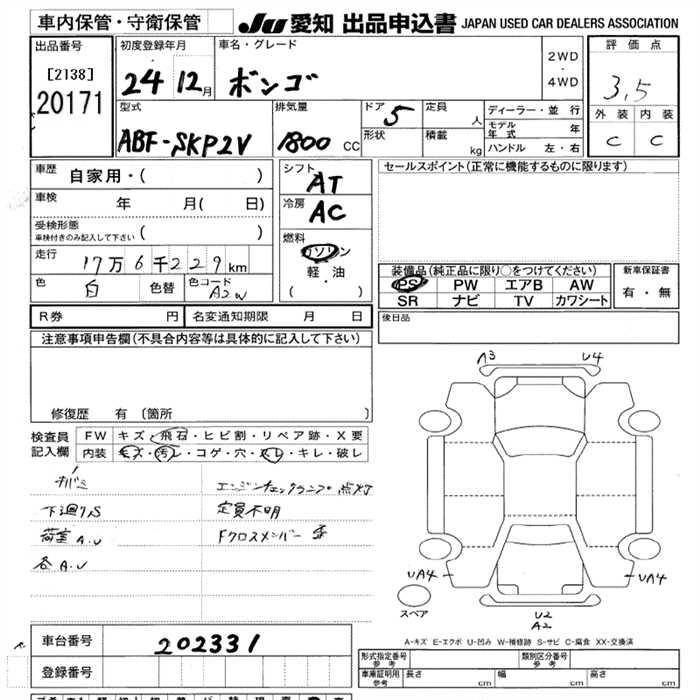 車内保管・守衛保管 JU 愛知 出品申込書 JAPAN USED CAR DEALERS ASSOCIATION
出品番号 初度登録年月 車名・グレード 2WD・4WD 評価点
[2138] 24 12月 ボンゴ 3.5
20171
型式 排気量 ドア 5 定員 人 ディーラー・並行 外装 内装
ABF-SKP2V 1800 CC 形状 積載 kg モデル年式 年 C C
ハンドル 左・右
車歴 自家用・( ) シフト AT セールスポイント(正常に機能するものに限ります)
車検 年 月( 日) 冷房 AC
受検形態 車検付きのみ記入して下さい ( ) 燃料 ガソリン
走行 17万6千229km 軽油
色 白 色替 色コード A2W ( )
装備品(純正品に限り○をつけてください) 新車保証書
PS PW エアB AW 有・無
SR ナビ TV カワシート
R券 円 名変通知期限 月 日 後日品
注意事項申告欄(不具合内容等は具体的に記入して下さい)
修復歴 有 [箇所
検査員記入欄 FW キズ・飛石・ヒビ割・リペア跡・X要
内装 キズ・汚レ・コゲ・穴・スレ・キレ・破レ
エンジンチェックランプ点灯
下廻りS 定員不明
荷室A.U Fクロスメンバー 歪
各A.U
A3 U4
UA4 UA4
スペア
U2
A2
A-キズ E-エクボ U-凹み W-補修跡 S-サビ C-腐食 XX-交換済
車台番号 202331
登録番号
形式指定番号 参考 類別区分番号 参考
車庫証明用 参考 長さ cm 幅 cm 高さ cm